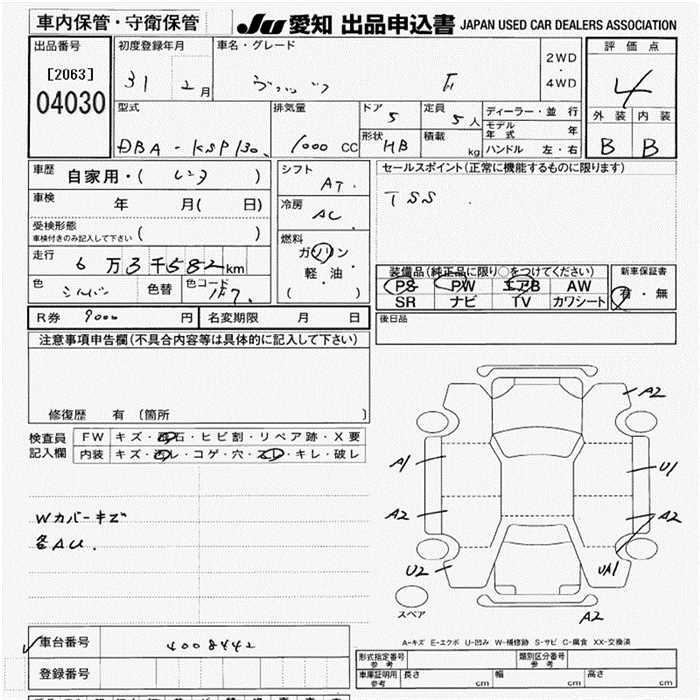 車内保管・守衛保管
JU 愛知 出品申込書 JAPAN USED CAR DEALERS ASSOCIATION
出品番号
[2063]
04030
初度登録年月
31 2月
車名・グレード
F
2WD
・
4WD
評価点
4
外装 内装
B B
型式
DBA-KSP130.
排気量
1000 CC
ドア 5
形状 HB
定員 5人
積載 kg
ディーラー・並行
モデル年式 年
ハンドル 左・右
車歴 自家用・( レンタ )
車検 年 月( 日)
受検形態
車検付きのみ記入して下さい ( )
走行 6万3千582km
色 シルバー 色替 色コード 1F7.
シフト AT.
冷房 AC.
燃料
ガソリン
・
軽・油
( )
セールスポイント(正常に機能するものに限ります)
TSS
装備品(純正品に限り○をつけてください)
PS PW エアB AW
SR ナビ TV カワシート
新車保証書
有・無
R券 9000 円 名変期限 月 日
後日品
注意事項申告欄(不具合内容等は具体的に記入して下さい)
修復歴 有 〔箇所 〕
検査員記入欄
FW キズ・飛石・ヒビ割・リペア跡・X要
内装 キズ・汚レ・コゲ・穴・スレ・キレ・破レ
Wカバーキズ
各AU.
A2
A1
U1
A2
A2
U2
UA1
A2
スペア
A-キズ E-エクボ U-凹み W-補修跡 S-サビ C-腐食 XX-交換済
車台番号 4008442
登録番号
形式指定番号 参考
類別区分番号 参考
車庫証明用 参考 長さ cm 幅 cm 高さ cm